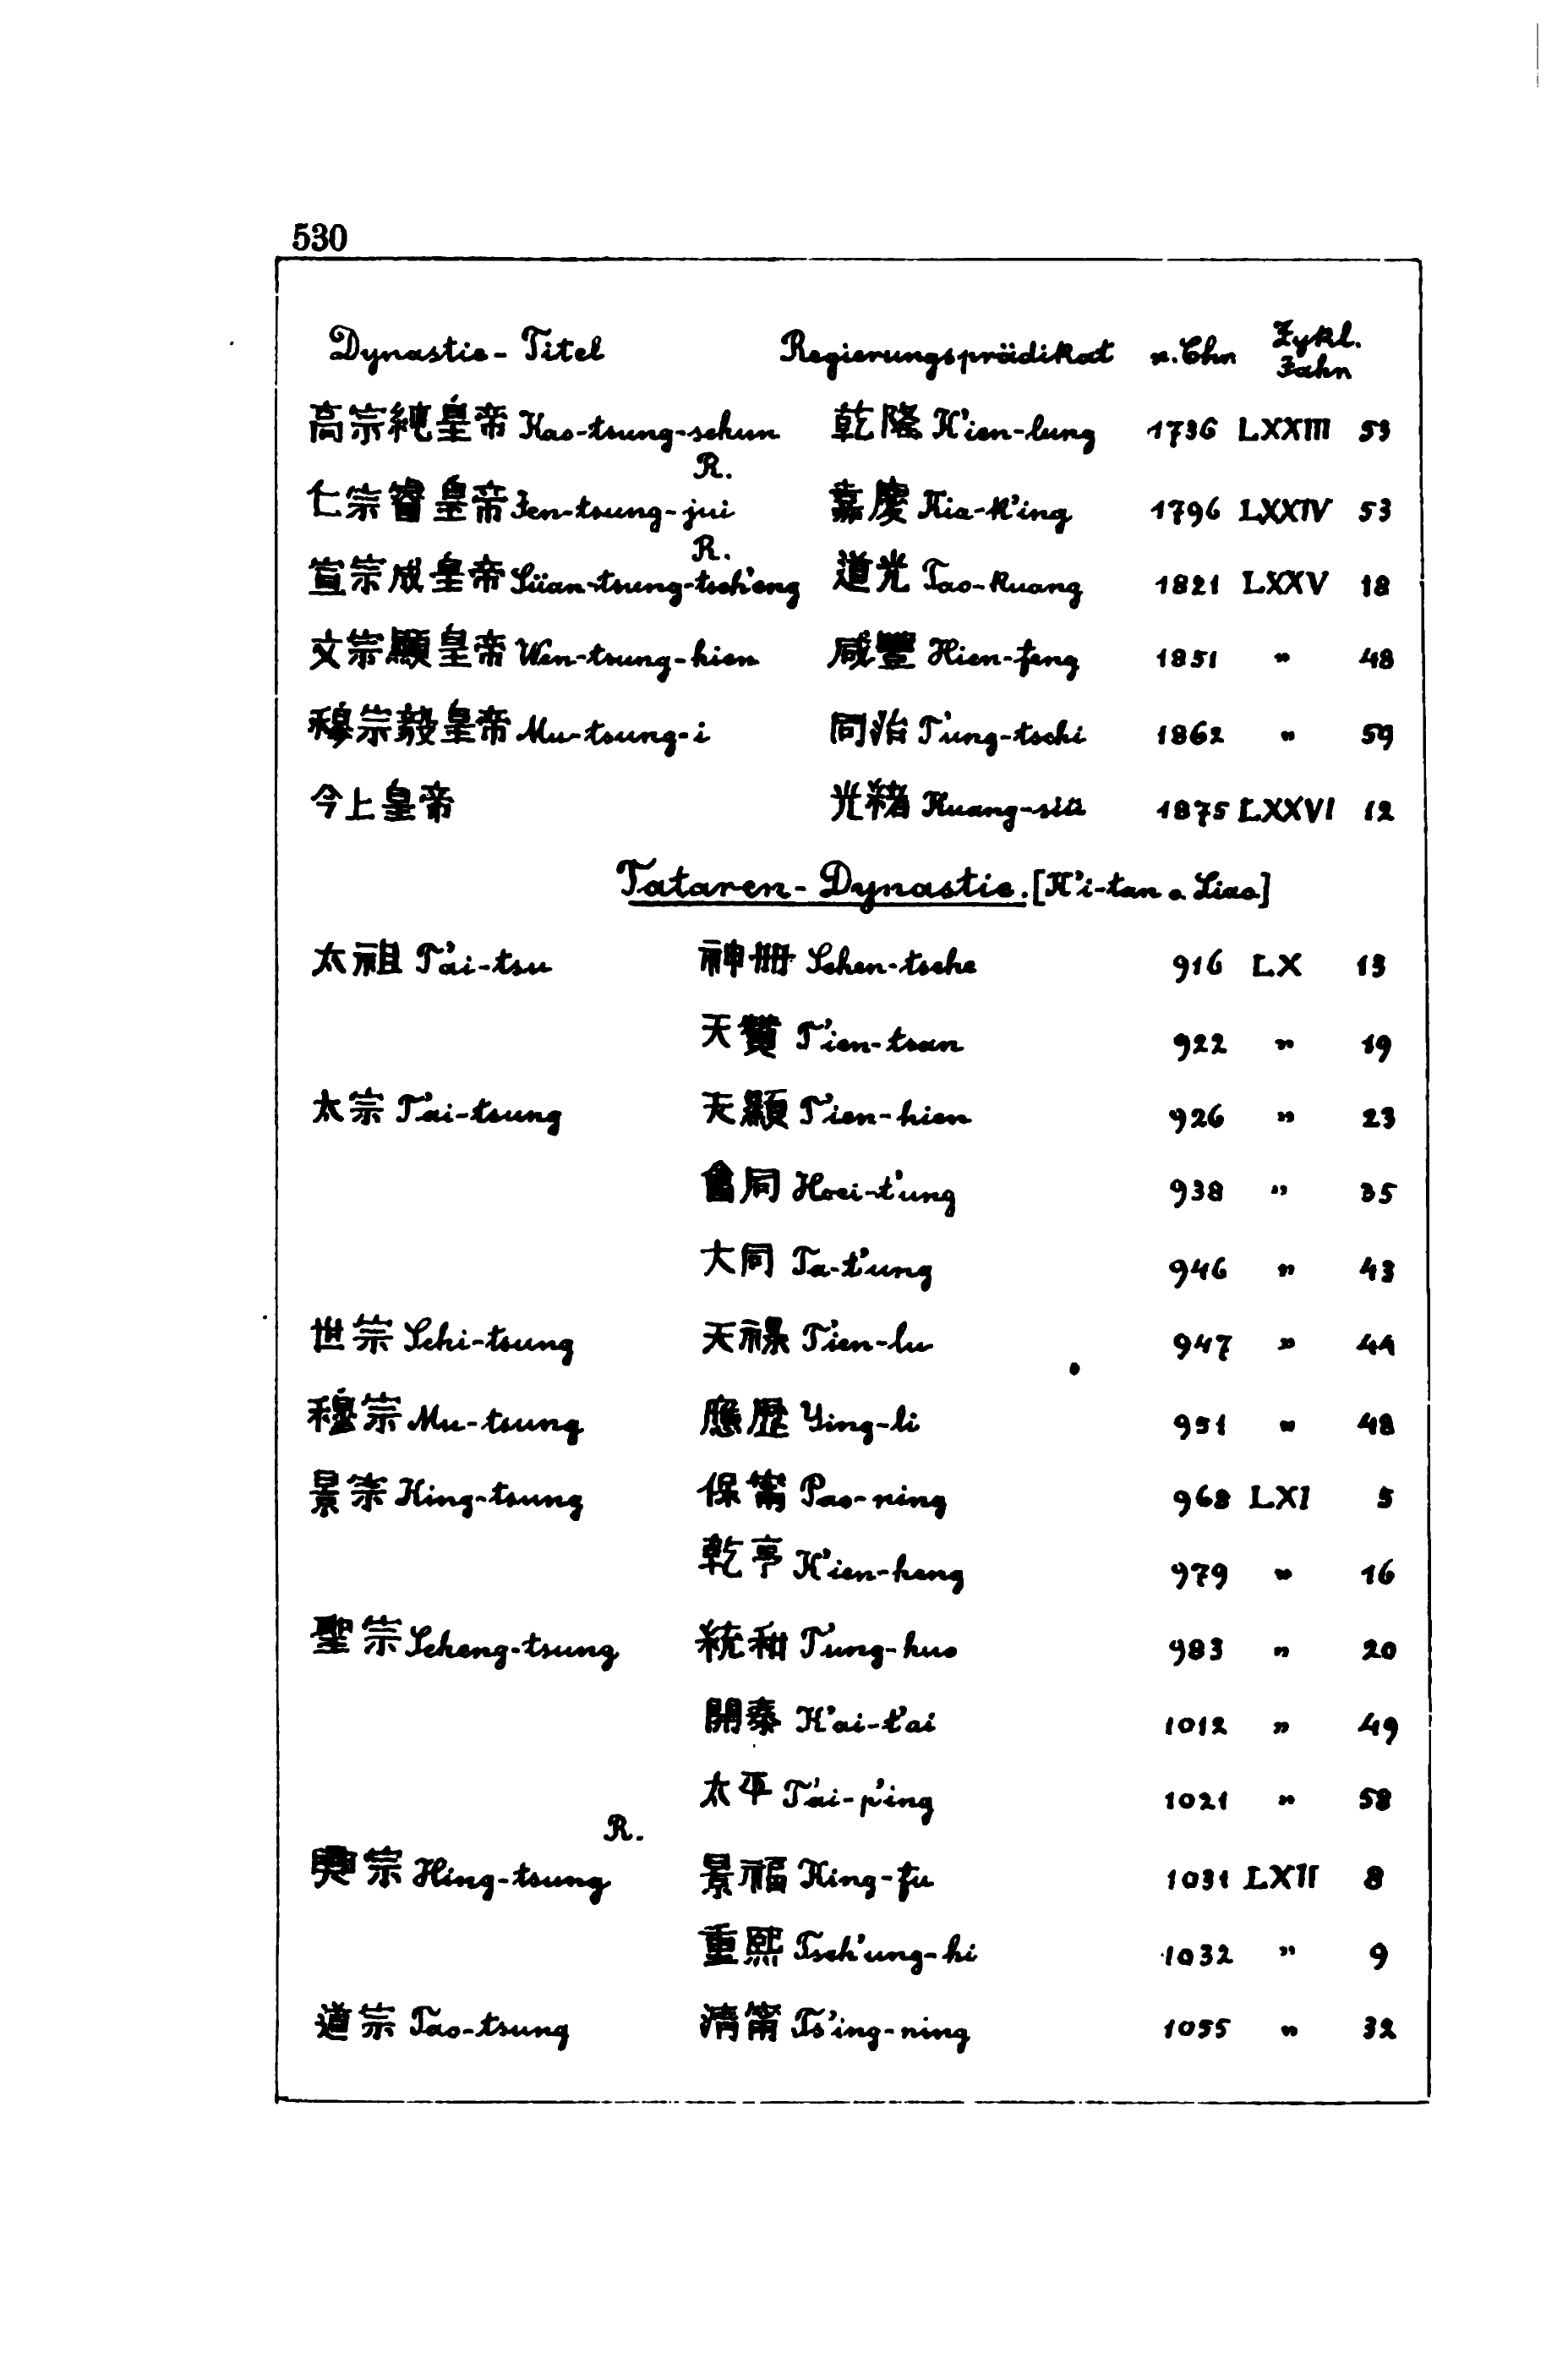 530
Dynastie-Titel Regierungsprädikat n. Chr. Zykl. Jahr
高宗純皇帝 Kao-tsung-schun 乾隆 K'ien-lung 1736 LXXIII 53
R.
仁宗睿皇帝 Jen-tsung-jui 嘉慶 Kia-k'ing 1796 LXXIV 53
R.
宣宗成皇帝 Süan-tsung-tsch'eng 道光 Tao-kuang 1821 LXXV 18
文宗顯皇帝 Wen-tsung-hien 咸豐 Hien-feng 1851 " 48
穆宗毅皇帝 Mu-tsung-i 同治 T'ung-tschi 1862 " 59
今上皇帝 光緒 Kuang-sü 1875 LXXVI 12
Tataren-Dynastie. [K'i-tan o. Liao]
太祖 T'ai-tsu 神冊 Schen-tsche 916 LX 13
天贊 T'ien-tsan 922 " 19
太宗 T'ai-tsung 天顯 T'ien-hien 926 " 23
會同 Hoei-t'ung 938 " 35
大同 Ta-t'ung 946 " 43
世宗 Schi-tsung 天祿 T'ien-lu 947 " 44
穆宗 Mu-tsung 應歷 Ying-li 951 " 48
景宗 King-tsung 保甯 Pao-ning 968 LXI 5
乾亨 K'ien-heng 979 " 16
聖宗 Scheng-tsung 統和 T'ung-huo 983 " 20
開泰 K'ai-t'ai 1012 " 49
太平 T'ai-p'ing 1021 " 58
R.
興宗 Hing-tsung 景福 King-fu 1031 LXII 8
重熙 Tsch'ung-hi 1032 " 9
道宗 Tao-tsung 清甯 Ts'ing-ning 1055 " 32